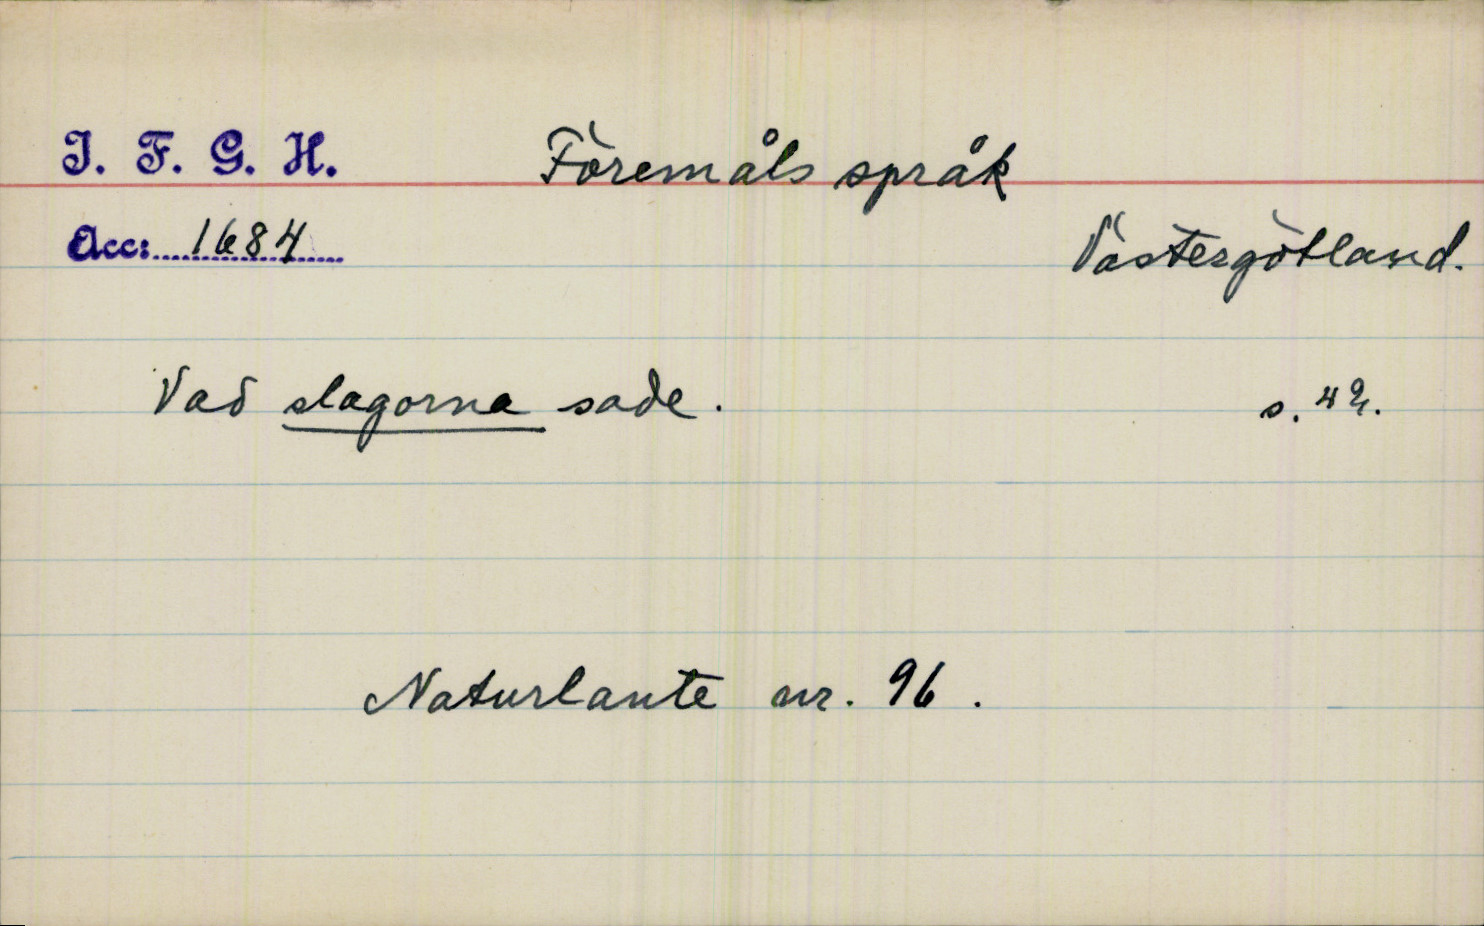 I. F. G. H. Föremåls språk
Acc: 1684
Västergötland.
Vad slagorna sade. s. 42.
Naturlaute nr. 96.